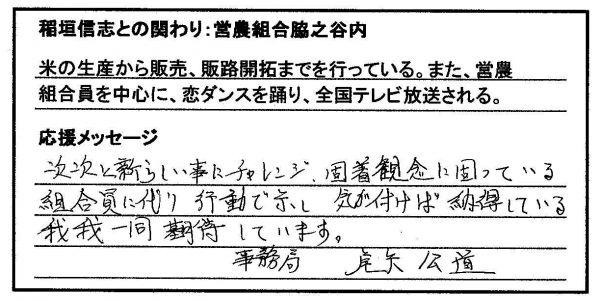 稲垣信志との関わり：営農組合脇之谷内
米の生産から販売、販路開拓までを行っている。また、営農
組合員を中心に、恋ダンスを踊り、全国テレビ放送される。
応援メッセージ
次次と新らしい事にチャレンジ、固着観念に固っている
組合員に代り 行動で示し 気が付けば 納得している
我我一同 期待しています。
事務局 虎矢 公道